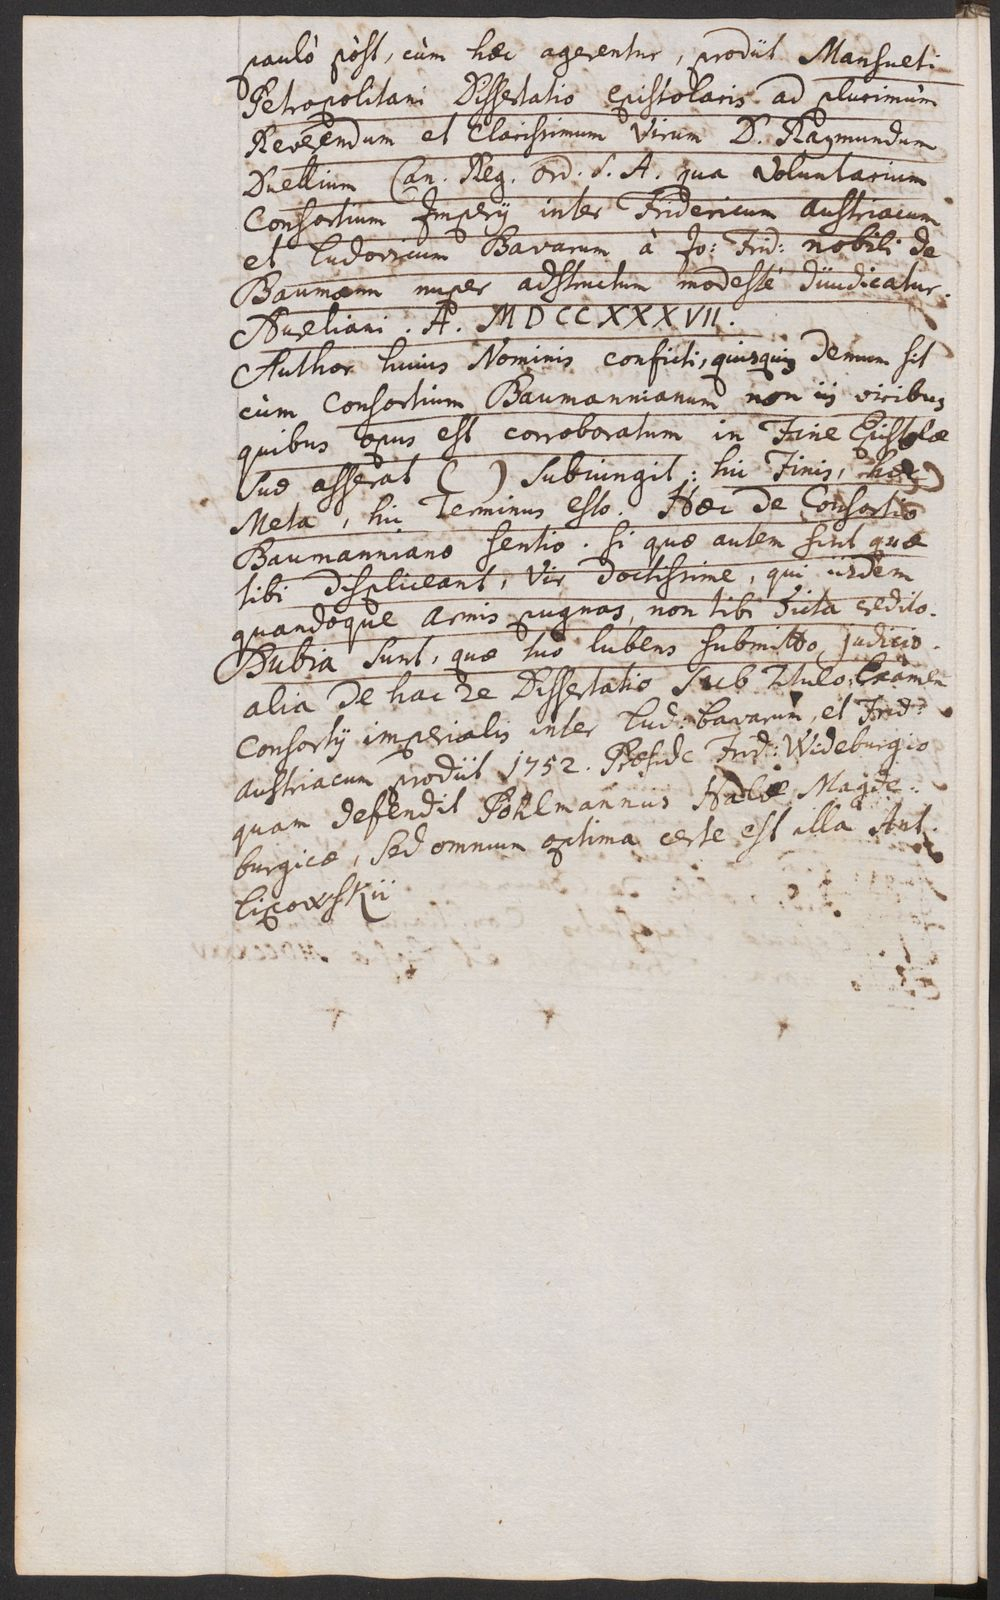 paulò pòst, cùm hæc agerentur, prodiit Mansueti
Petropolitani Dissertatio epistolaris ad plurimùm
Reverendum et Clarissimum Virum D. Raymundum
Duellium Can. Reg. Ord. S. A. qua Voluntarium
Consortium Imperij inter Fridericum Austriacum
et Ludovicum Bavarum à Jo: Frid: nobili de
Baumann nuper adstructum modestè diiudicatur.
Aureliani. A. MDCCXXXVII.
Author huius Nominis conficti, quisquis demum sit
cùm Consortium Baumannianum non iis viribus
quibus opus est corroboratum in Fine Epistolæ
suæ asserat ( ) subiungit: hic Finis, hæc
Meta, hic Terminus esto. Hæc de Consortio
Baumanniano sentio. si quæ autem sint quæ
tibi displiceant, Vir doctissime, qui iisdem
quandoque armis pugnas, non tibi dicta credito.
Dubia sunt, quæ tuo lubens submitto judicio.
alia de hac re Dissertatio sub titulo: Examen
Consortij imperialis inter Lud: bavarum, et Frid:
austriacum prodiit 1752. Præside Frid: Wideburgio
quam defendit Pohlmannus Halæ Magde:
burgicæ, sed omnium optima certe est illa Ant.
Lipowskii